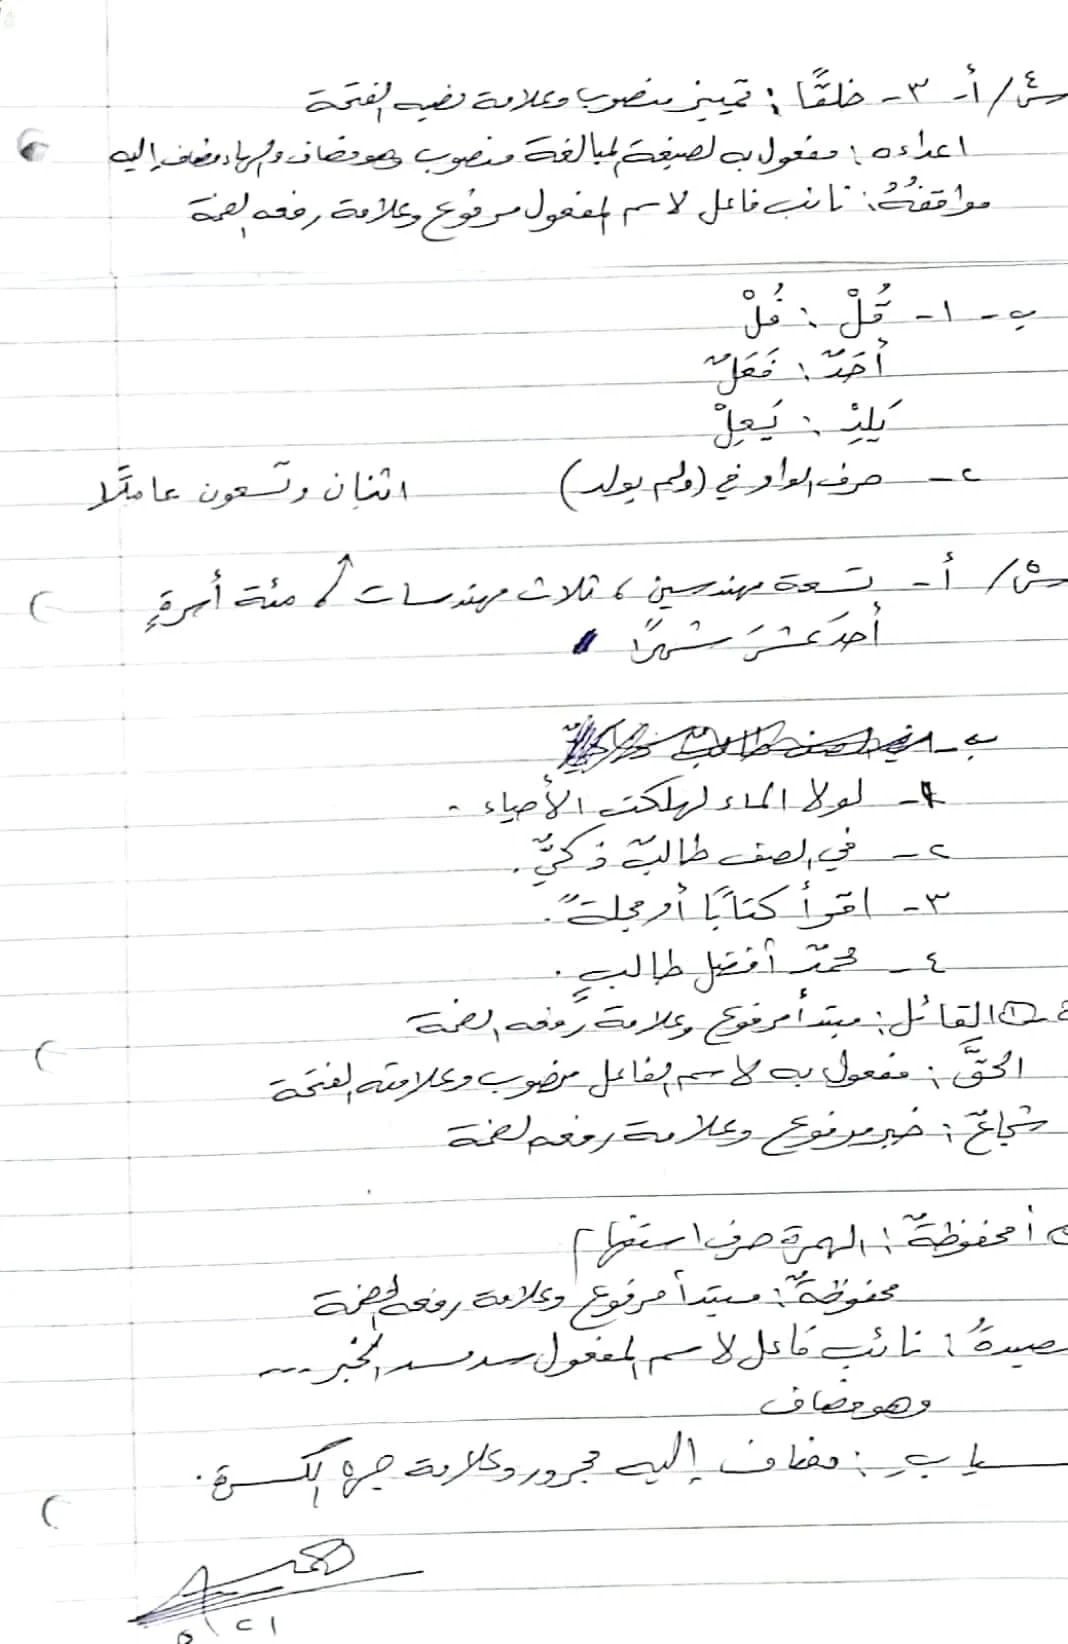 س٤/ أ- ٣- خلقًا : تمييز منصوب وعلامة نصبه الفتحة
اعداءه : مفعول به لصيغة المبالغة منصوب وهو مضاف والهاء مضاف إليه
مواقفُهُ : نائب فاعل لاسم المفعول مرفوع وعلامة رفعه الضمة
ب - ١- قُلْ : فُلْ
أَحَدٌ : فَعَلٌ
يَلِدْ : يَعِلْ
٢- حرف الواو في (ولم يولد) اثنان وتسعون عاملًا
س٥/ أ- تسعة مهندسين ، ثلاث مهندسات ، مئة أسرةٍ
أحدَ عشرَ شهرًا
ب -
١- لولا الماء لهلكت الأحياء .
٢- في الصف طالبٌ ذكيٌّ .
٣- اقرأ كتابًا أو مجلةً .
٤- محمدٌ أفضل طالبٍ .
١ القائل : مبتدأ مرفوع وعلامة رفعه الضمة
الحقَّ : مفعول به لاسم الفاعل منصوب وعلامته الفتحة
شجاعٌ : خبر مرفوع وعلامة رفعه الضمة
أمحفوظةٌ : الهمزة حرف استفهام
محفوظةٌ : مبتدأ مرفوع وعلامة رفعه الضمة
صيدةُ : نائب فاعل لاسم المفعول سد مسد الخبر ...
وهو مضاف
سيابِ : مضاف إليه مجرور وعلامة جره الكسرة .
٥/٢١